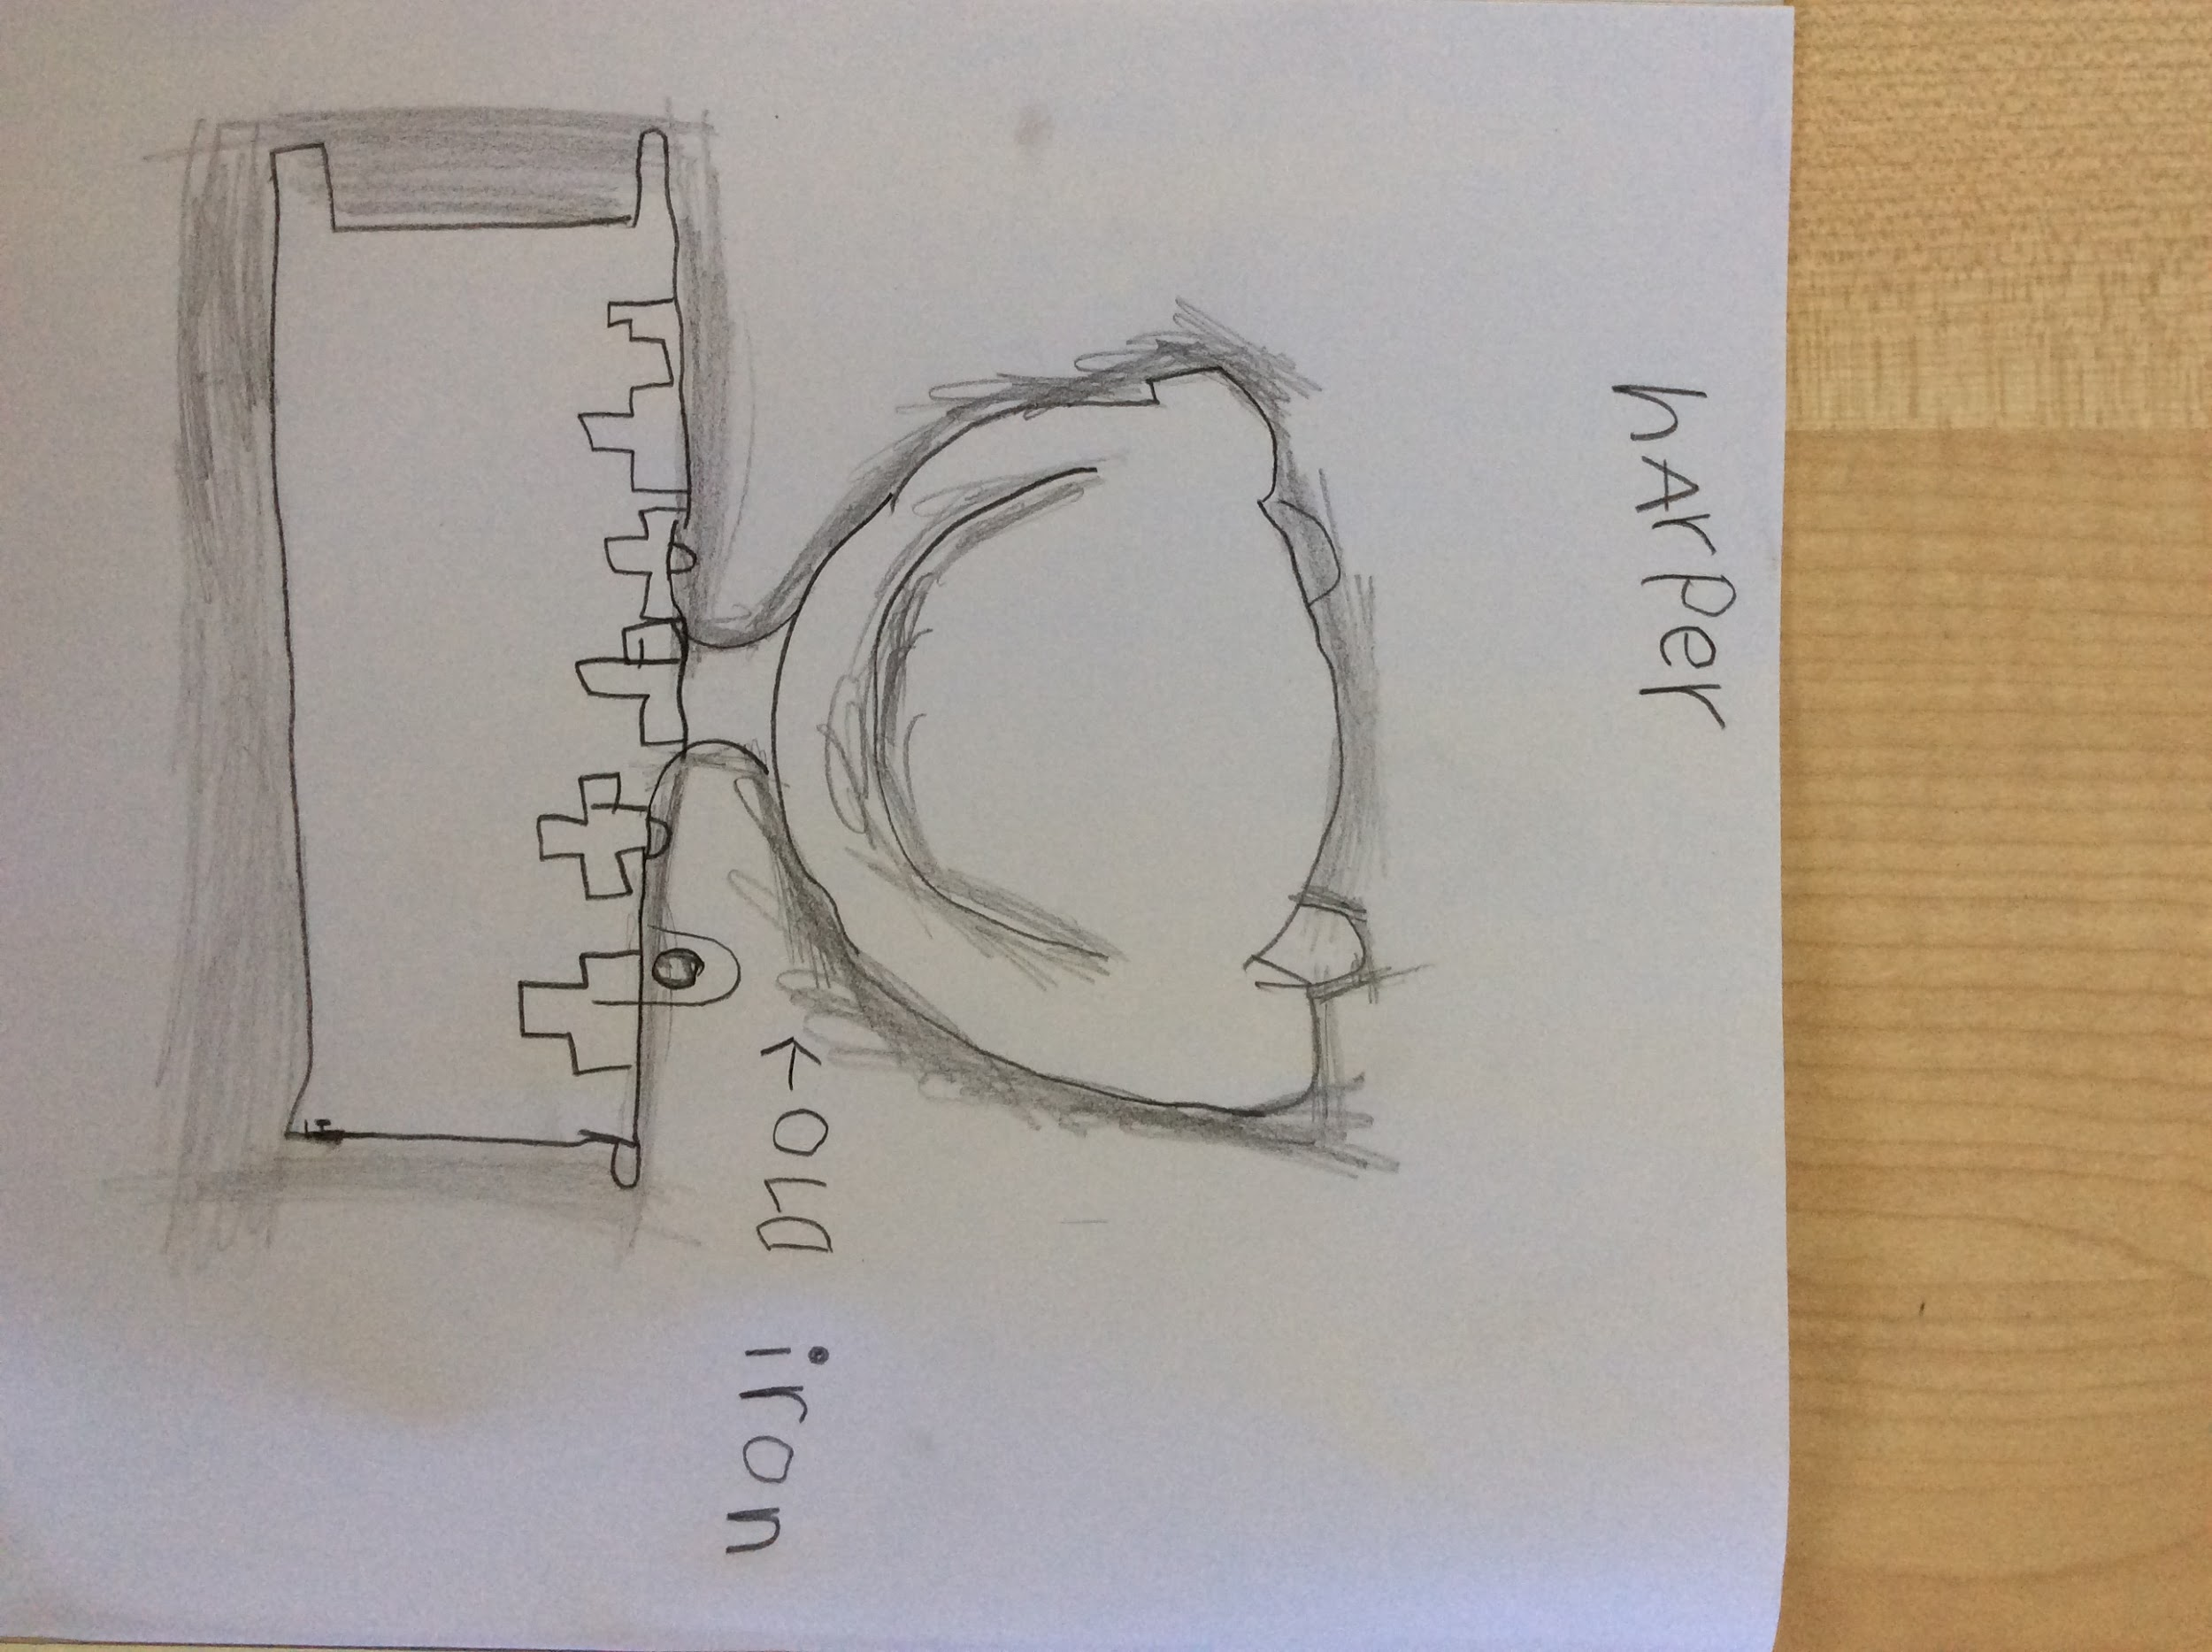 hArper
OLD iron